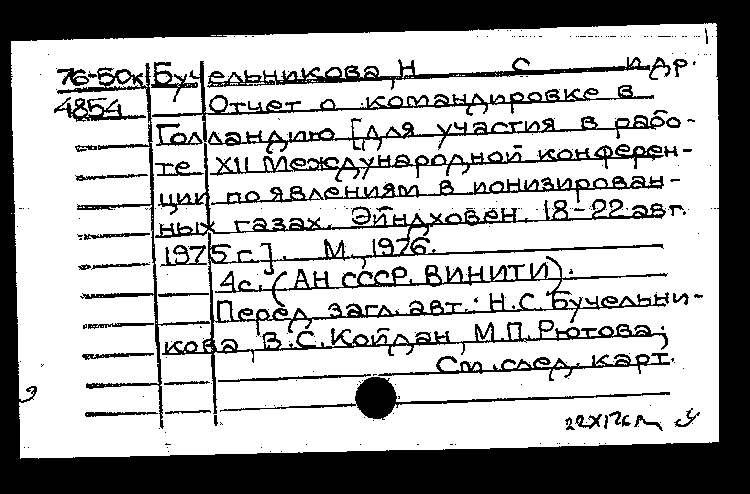 76-50к Бучельникова, Н С и др.
4854 Отчет о командировке в
Голландию [для участия в рабо-
те XII Международной конферен-
ции по явлениям в ионизирован-
ных газах. Эйндховен. 18-22 авг.
1975 г.]. М., 1976.
4с. (АН СССР. ВИНИТИ).
Перед загл. авт.: Н.С. Бучельни-
кова, В.С. Койдан, М.П. Рютова;
См. след. карт.